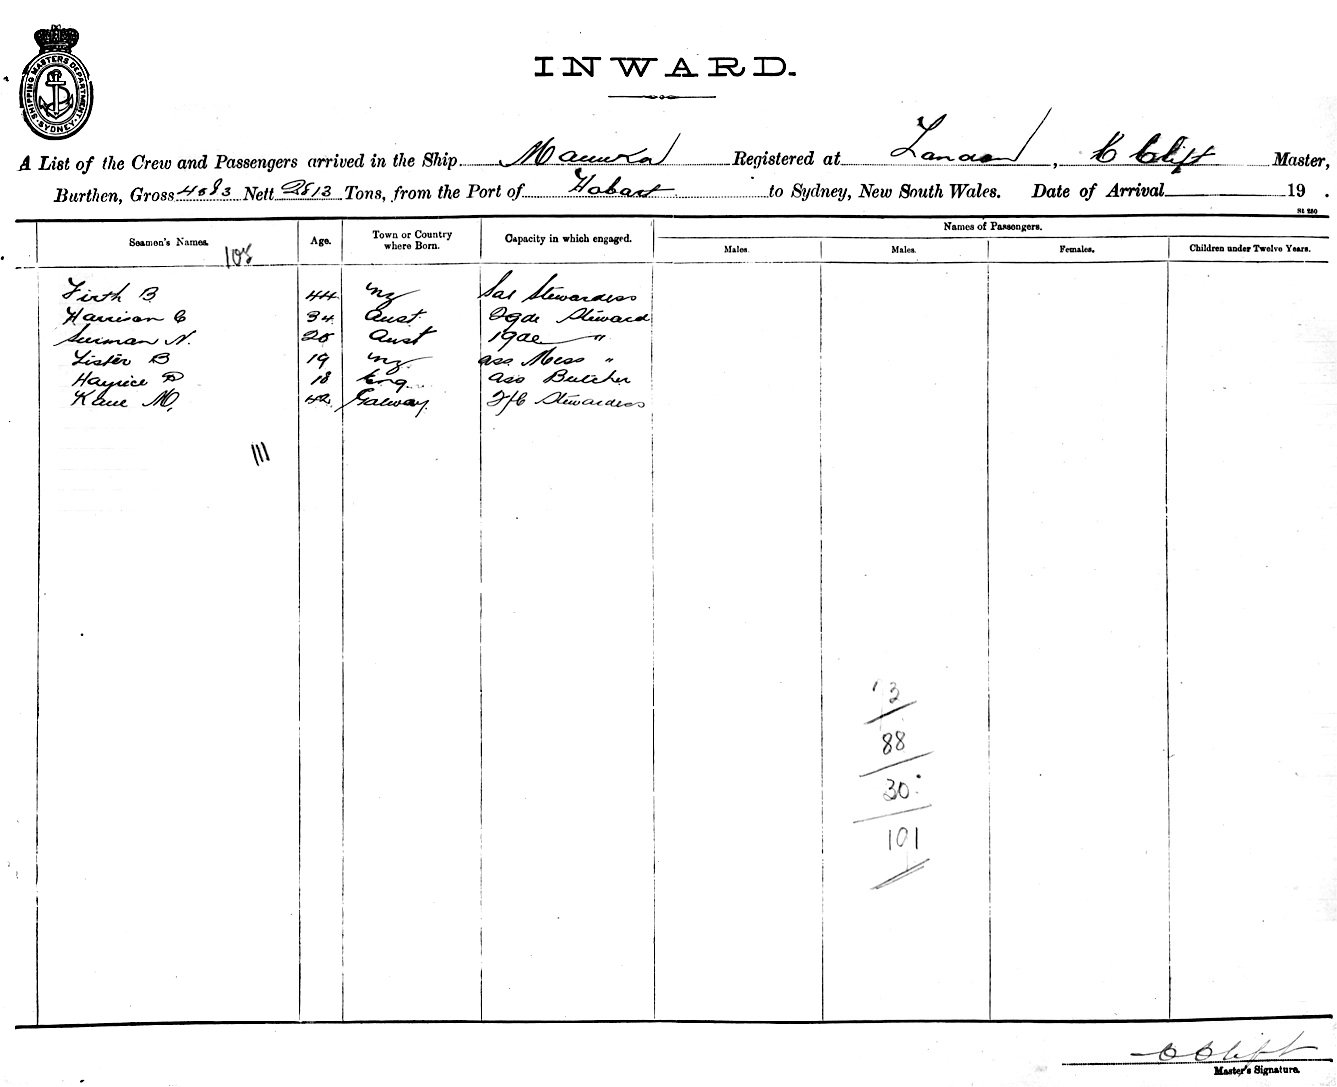 SHIPPING MASTERS DEPARTMENT SYDNEY
INWARD.
A List of the Crew and Passengers arrived in the Ship Manuka Registered at London, C Clift Master,
Burthen, Gross Nett 2813 Tons, from the Port of Hobart to Sydney, New South Wales. Date of Arrival 19 .
St 280
Seamen's Names. Age. Town or Country where Born. Capacity in which engaged. Names of Passengers.
Males. Males. Females. Children under Twelve Years.
108
Firth B 44 NZ Sal Stewardess
Harrison C 34 Aust 2gde Steward
N. Aust 1gde "
Lister B 19 NZ ass Mess "
18 Eng ass Butcher
Kane M. 42 Galway F/C Stewardess
111
3
88
30
101
C Clift
Master's Signature.